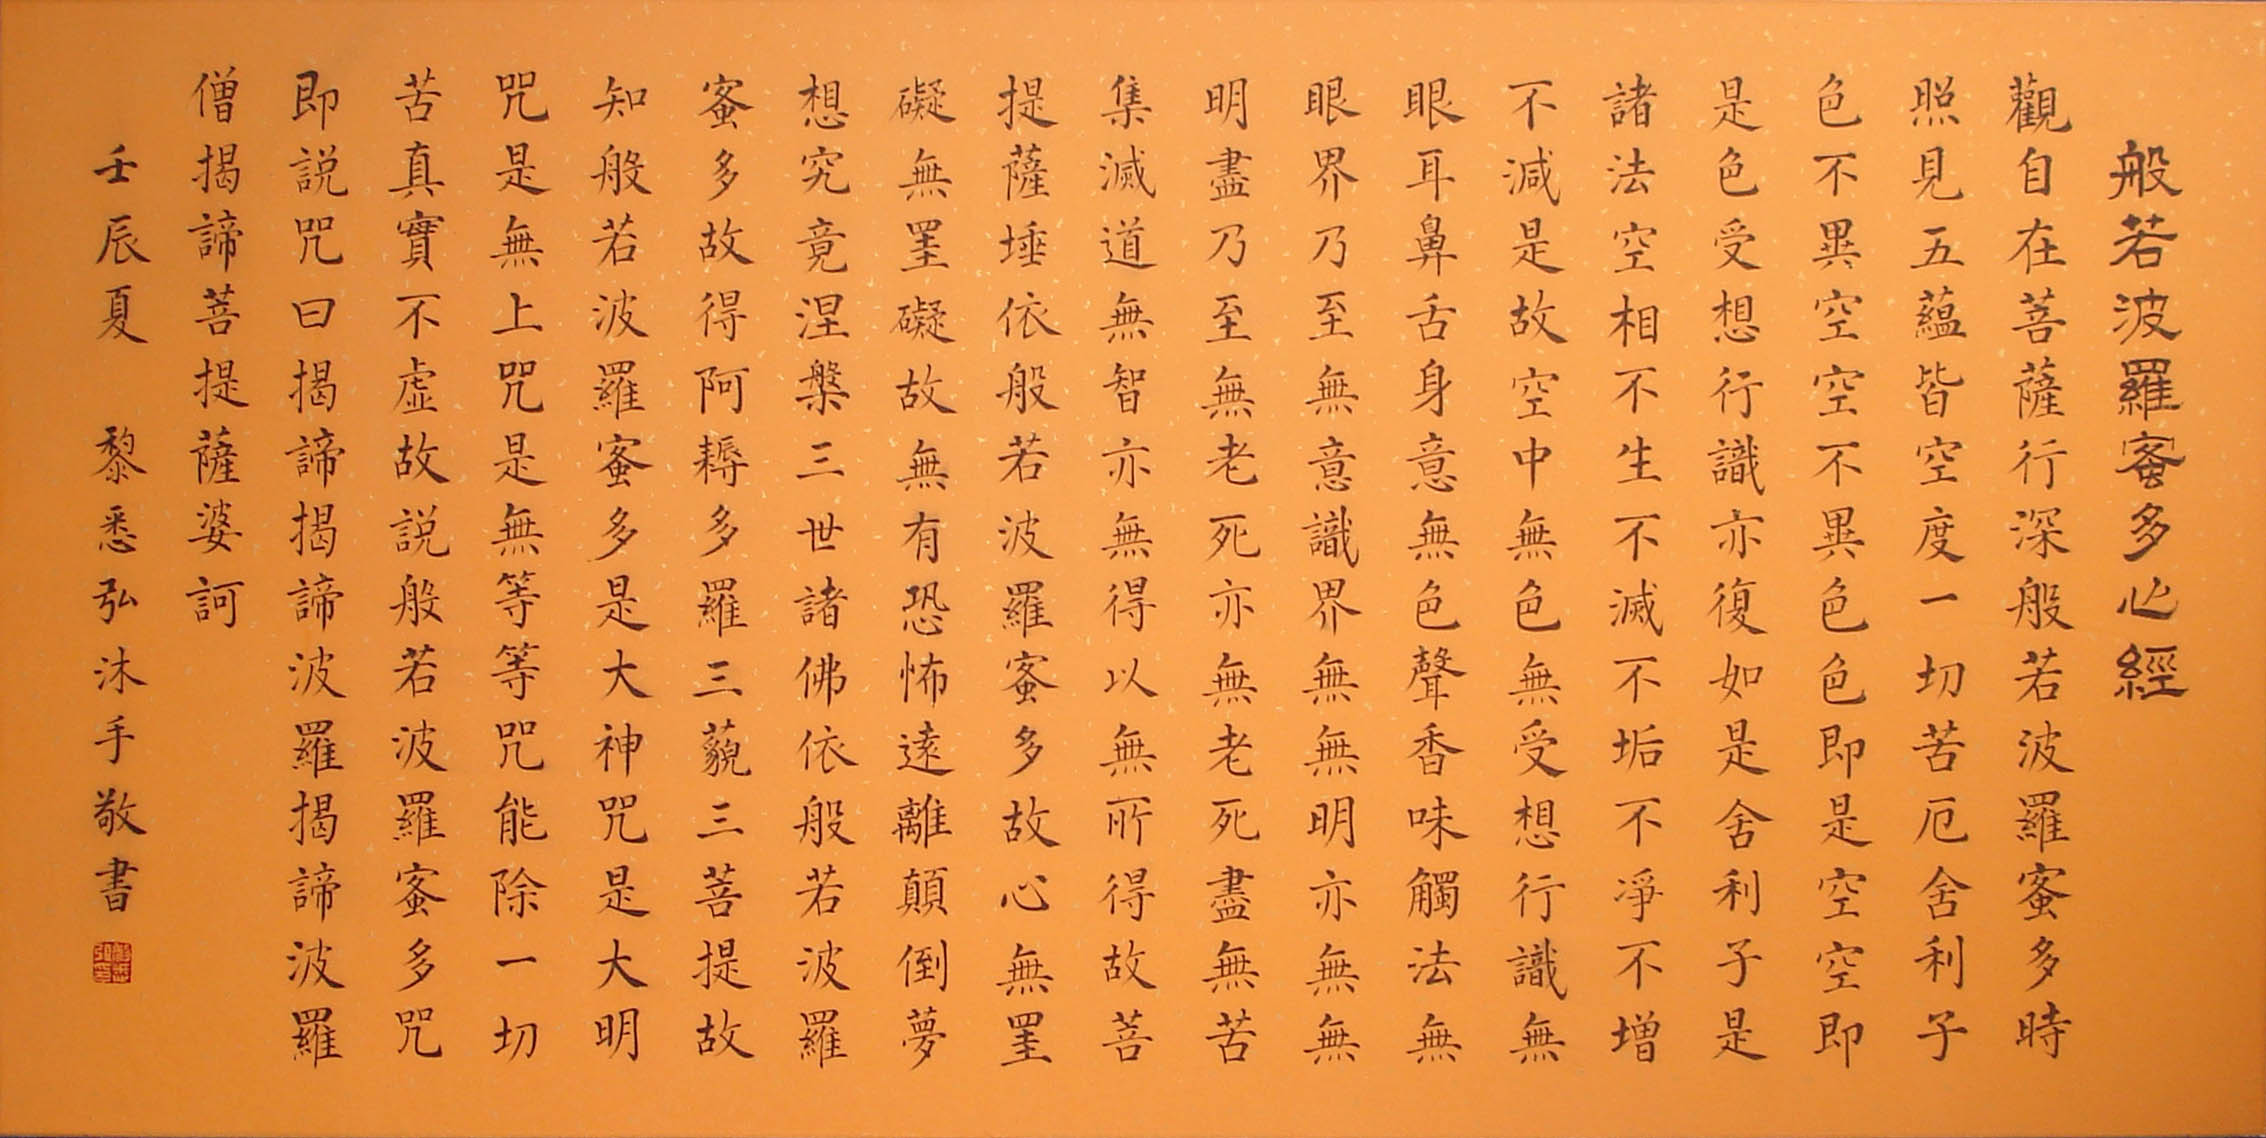 般若波羅蜜多心經
觀自在菩薩行深般若波羅蜜多時
照見五蘊皆空度一切苦厄舍利子
色不異空空不異色色即是空空即
是色受想行識亦復如是舍利子是
諸法空相不生不滅不垢不淨不增
不減是故空中無色無受想行識無
眼耳鼻舌身意無色聲香味觸法無
眼界乃至無意識界無無明亦無無
明盡乃至無老死亦無老死盡無苦
集滅道無智亦無得以無所得故菩
提薩埵依般若波羅蜜多故心無罣
礙無罣礙故無有恐怖遠離顛倒夢
想究竟涅槃三世諸佛依般若波羅
蜜多故得阿耨多羅三藐三菩提故
知般若波羅蜜多是大神咒是大明
咒是無上咒是無等等咒能除一切
苦真實不虛故説般若波羅蜜多咒
即説咒曰揭諦揭諦波羅揭諦波羅
僧揭諦菩提薩婆訶
壬辰夏 黎悉弘沐手敬書